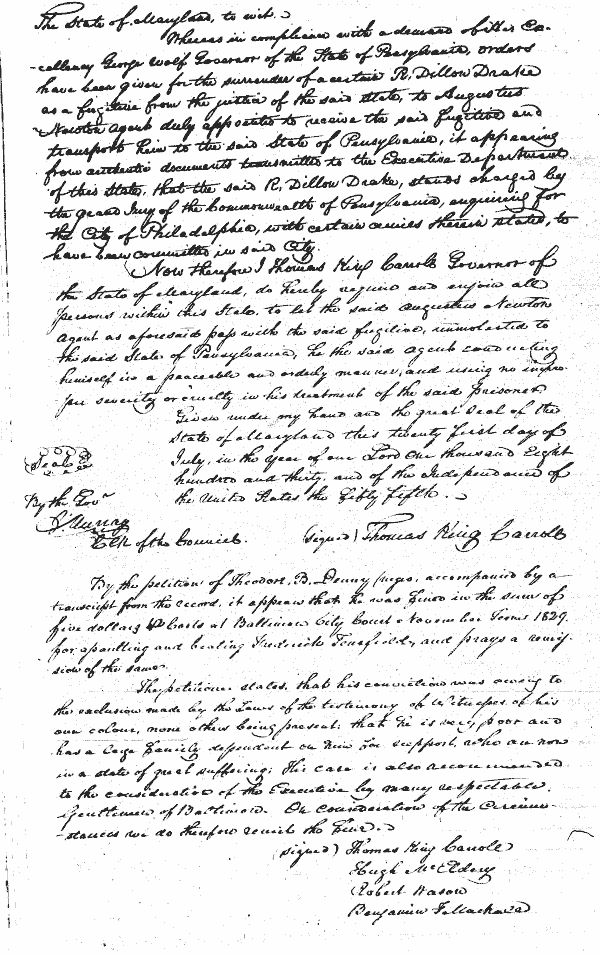 The State of Maryland, to wit.
Whereas in compliance with a demand of His Ex-
-cellency George Wolf Governor of the State of Pensylvania, orders
have been given for the surrender of a certain R. Dillow Drake
as a fugitive from the justice of the said State, to Augustus
Newton agent duly appointed to receive the said fugitive and
transport him to the said State of Pensylvania, it appearing
from authentic documents transmitted to the Executive Department
of this State, that the said R. Dillow Drake, stands charged by
the grand Jury of the Commonwealth of Pensylvania, enquiring for
the City of Philadelphia, with certain crimes therein stated, to
have been committed in said City.
Now therefore I Thomas King Carroll Governor of
the State of Maryland, do hereby require and enjoin all
persons within this State, to let the said Augustus Newton
agent as aforesaid pass with the said fugitive, unmolested to
the said State of Pensylvania, he the said agent conducting
himself in a peaceable and orderly manner, and using no impro-
per severity or cruelty in his treatment of the said prisoner
Given under my hand and the great Seal of the
State of Maryland this twenty first day of
Seal
July, in the year of our Lord One thousand Eight
hundred and thirty, and of the Independence of
By the Govr
the United States the fifty fifth.
Murray
Clk of the Council.
(signed) Thomas King Carroll
By the petition of Theodore, B. Denny negro, accompanied by a
transcript from the record, it appears that he was fined in the sum of
five dollars & Costs at Baltimore City Court November Term 1829.
for assaulting and beating Frederick and prays a remis-
sion of the same.
The petitioner states, that his conviction was owing to
the exclusion made by the Laws of the testimony of Witnesses of his
own colour, none others being present; that he is very poor and
has a large family dependent on him for support, who are now
in a state of great suffering; His case is also recommended
to the consideration of the Executive by many respectable
Gentlemen of Baltimore. On consideration of the Circum-
-stances we do therefore remit the fine.
(signed) Thomas King Carroll
Hugh McEldery
Robert Wason
Benjamin F. Mackall